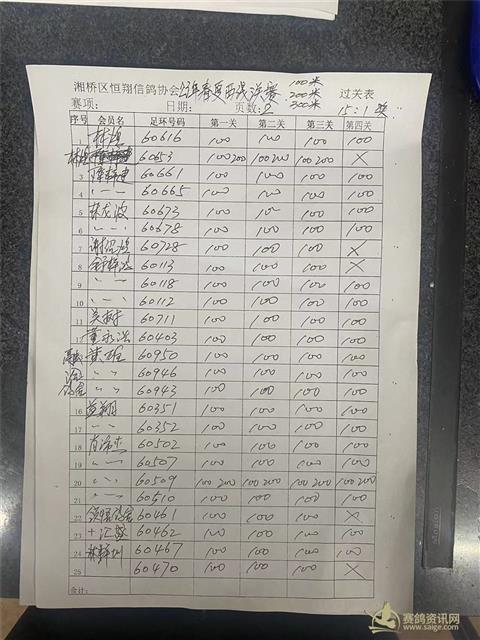 湘桥区恒翔信鸽协会 过关表
100米
200米
300米
赛项： 日期： 页数：2 15:1奖
序号 会员名 足环号码 第一关 第二关 第三关 第四关
1 60616 100 100 100 100
60653 100 200 100 200 100 200 ×
3 60661 100 100 100 100
4 60665 100 100 100 100
5 林龙波 60673 100 100 100 100
6 60678 100 100 100 100
7 60728 100 100 100 ×
8 60113 100 100 100 ×
9 60118 100 100 100 100
10 60112 100 100 100 100
11 吴树 60711 100 100 100 100
12 董永浩 60403 100 100 100 100
黄雄 60950 100 100 100 100
60946 100 100 100 100
60943 100 100 100 100
16 益翔 60351 100 100 100 100
17 60352 100 100 100 100
18 60502 100 100 100 100
19 60507 100 100 100 100
20 60509 100 200 100 200 100 200 100 200
21 60510 100 100 100 100
22 60461 100 100 100 ×
23 十汇盛 60462 100 100 100 100
24 60467 100 100 100 100
25 60470 100 100 100 ×
合计：
赛鸽资讯网
www.saige.com